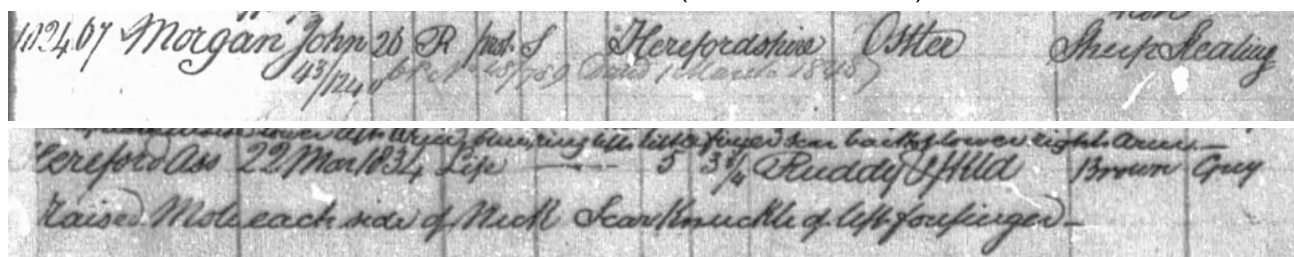 1024 67 Morgan John 26 R prot. S Herefordshire Ostler Sheep Stealing
43/1240 dated 1 March 1848
lower left arm, blue ring left little finger scar back of lower right arm—
Hereford Ass 22 Mar 1834 Life — 5 3 3/4 Ruddy & Pckd Brown Grey
Raised Mole each side of Neck Scar Knuckle of left forefinger—